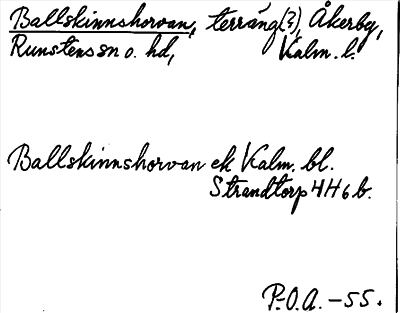 Ballskinnshorvan, terräng(?), Åkerby,
Runstens sn o. hd, Kalm. l.
Ballskinnshorvan ek Kalm. bl.
Strandtorp 4H6b.
P.O.A. -55.